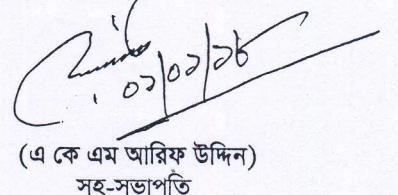 ০১/০১/১৮
(এ কে এম আরিফ উদ্দিন)
সহ-সভাপতি